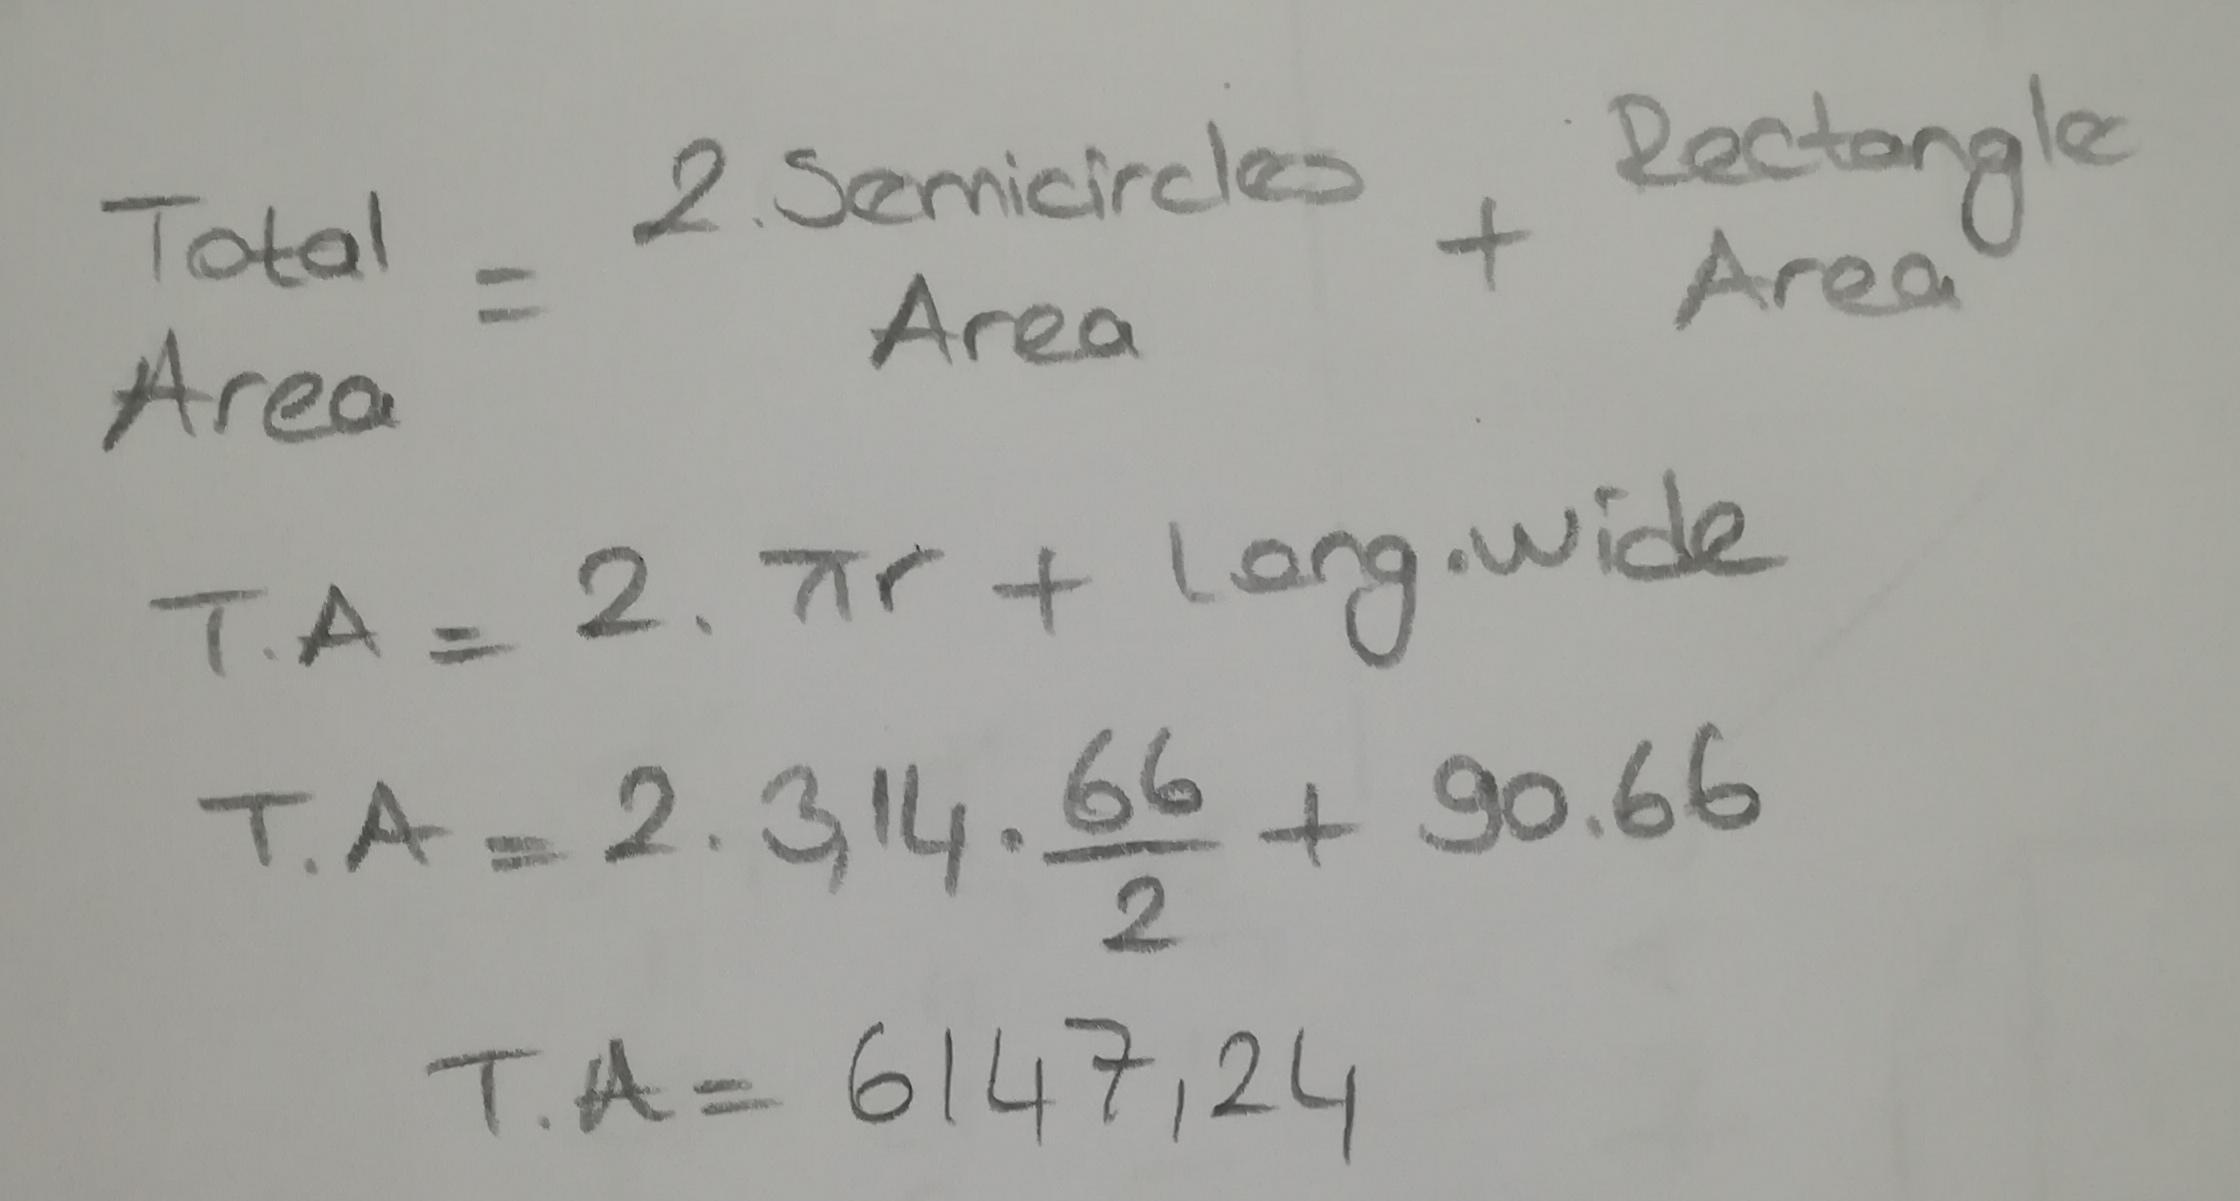 Total Area = 2. Semicircles Area + Rectangle Area
T.A = 2. πr + Long.wide
T.A = 2. 3,14. 66/2 + 90.66
T.A = 6147,24